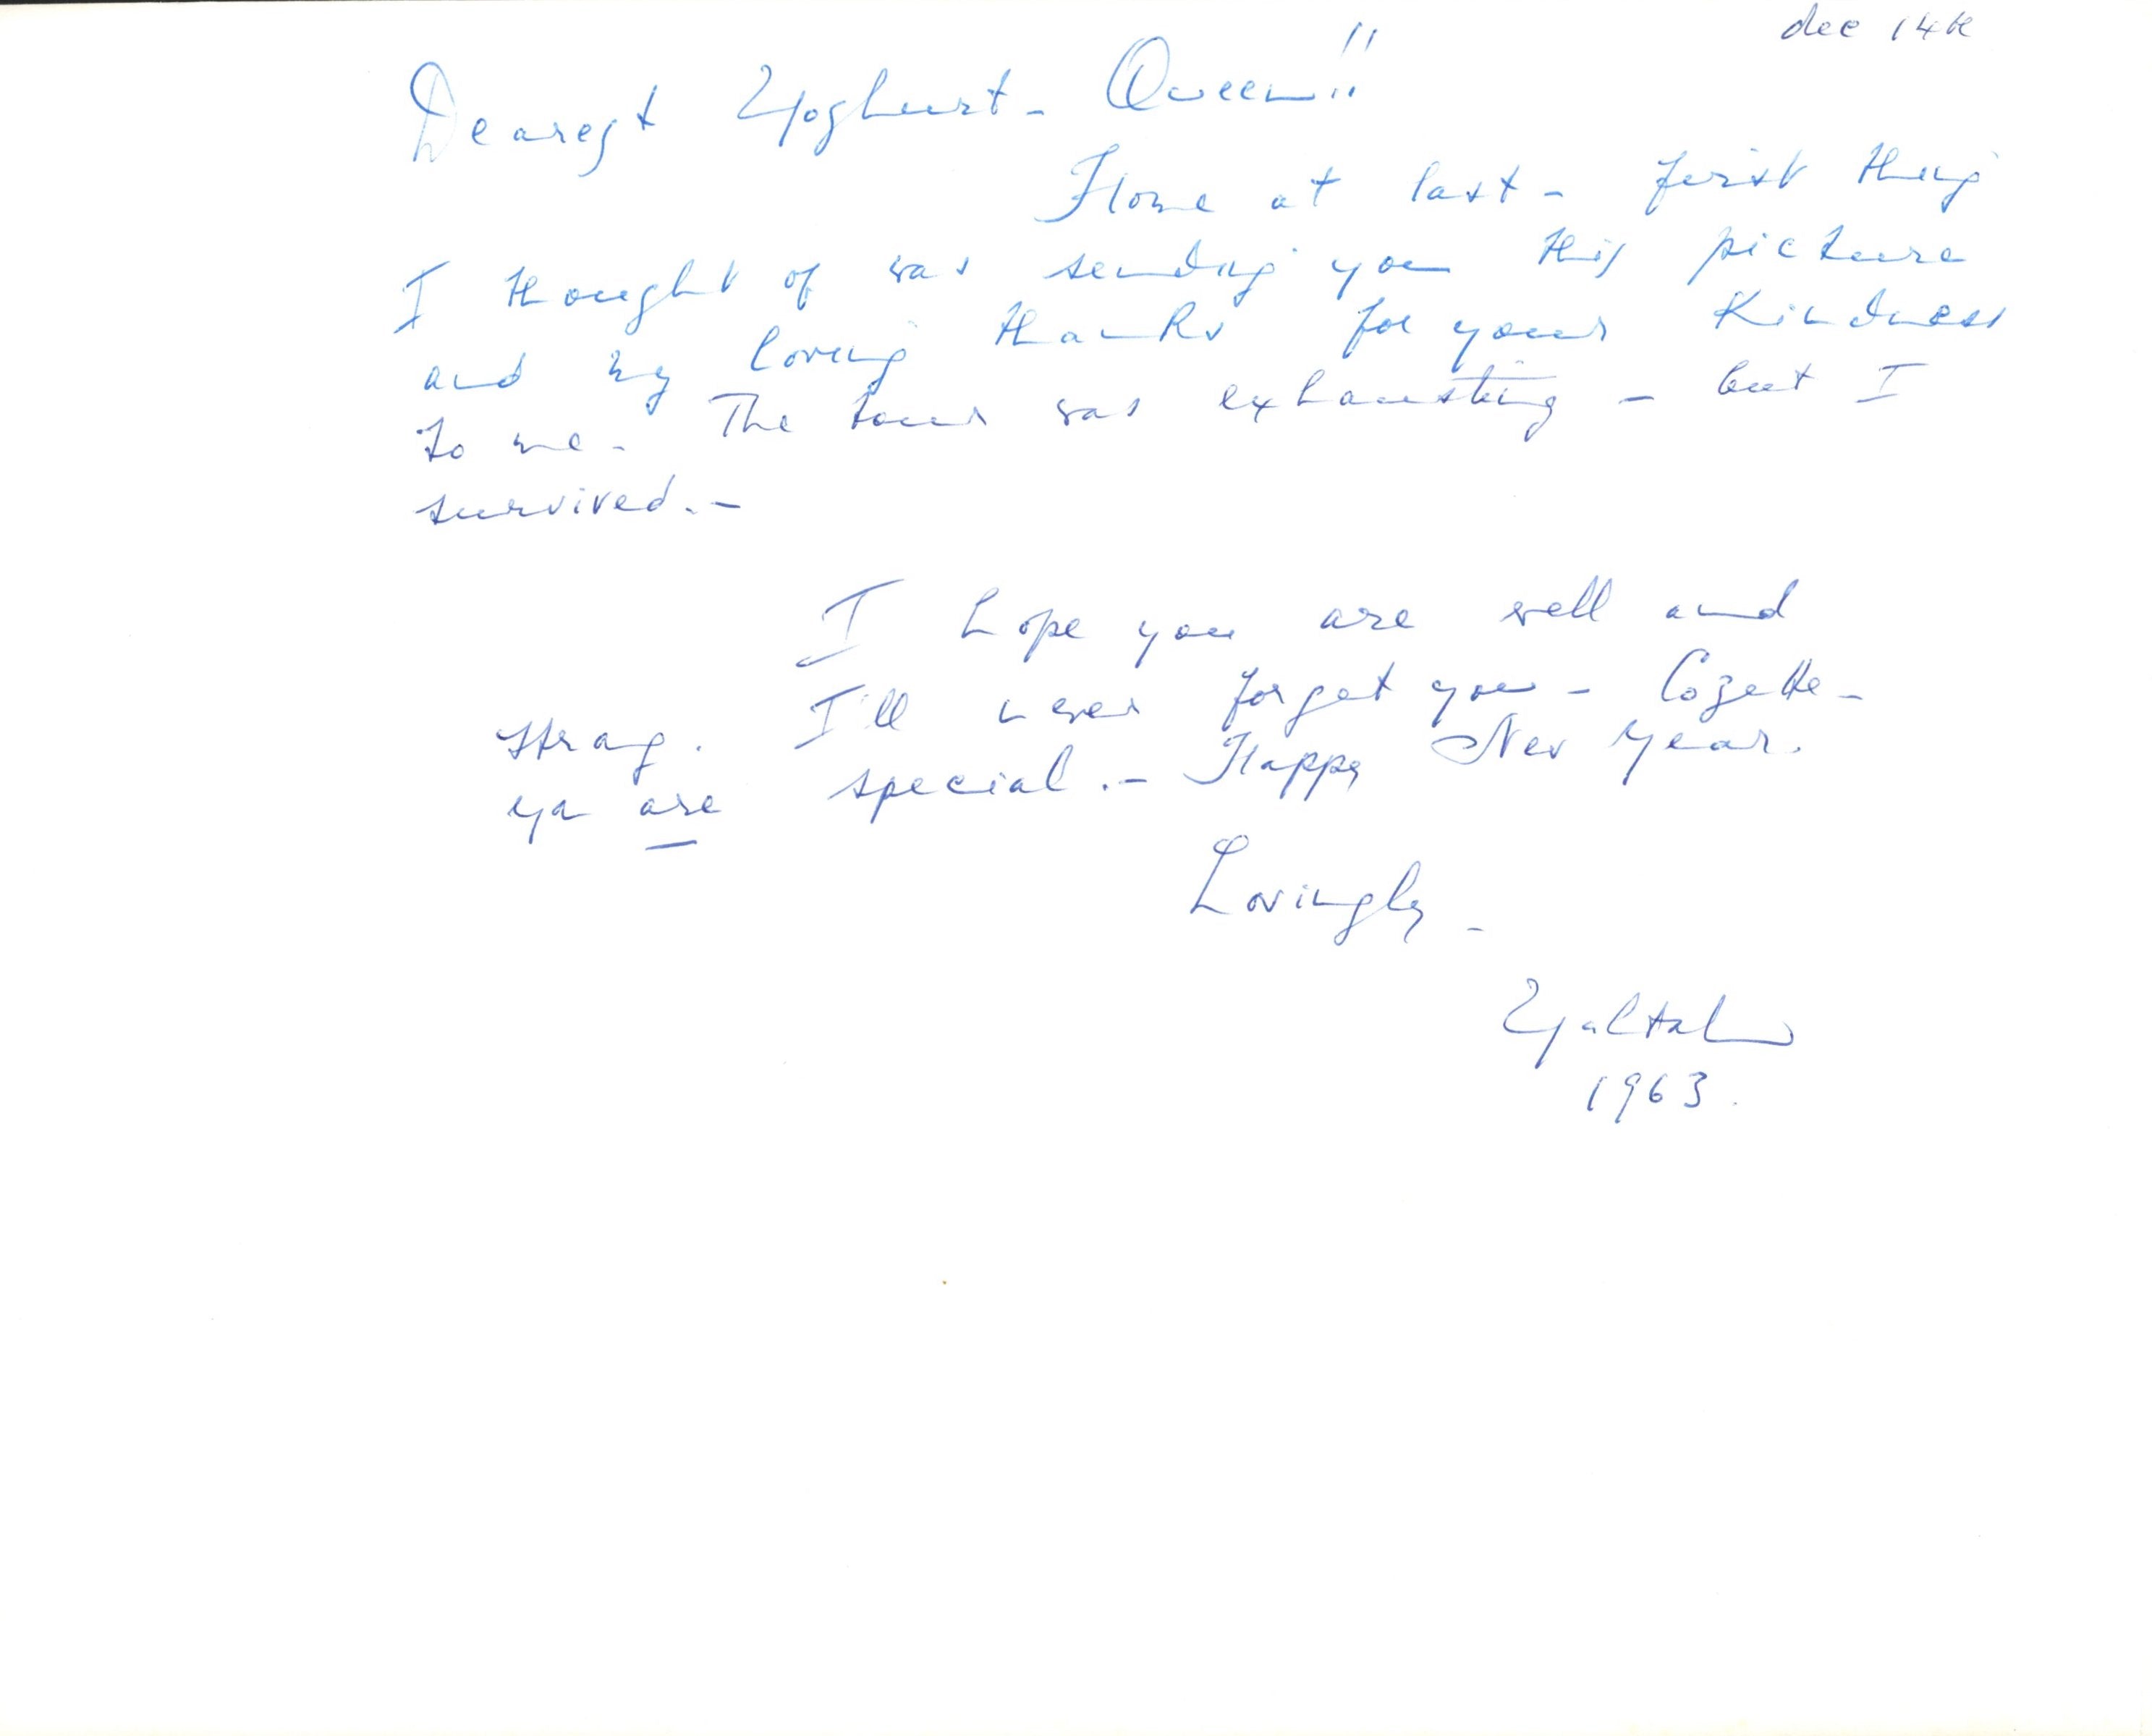 dec 14th
Dearest Yoghurt - Queen!!
Home at last - first thing
I thought of was sending you this picture
and my loving thanks for your kindness
to me - The tour was exhausting - but I
survived. -
I hope you are well and
strong. I'll never forget you - Cozette -
ya are special. - Happy New Year.
Lovingly -
1963.